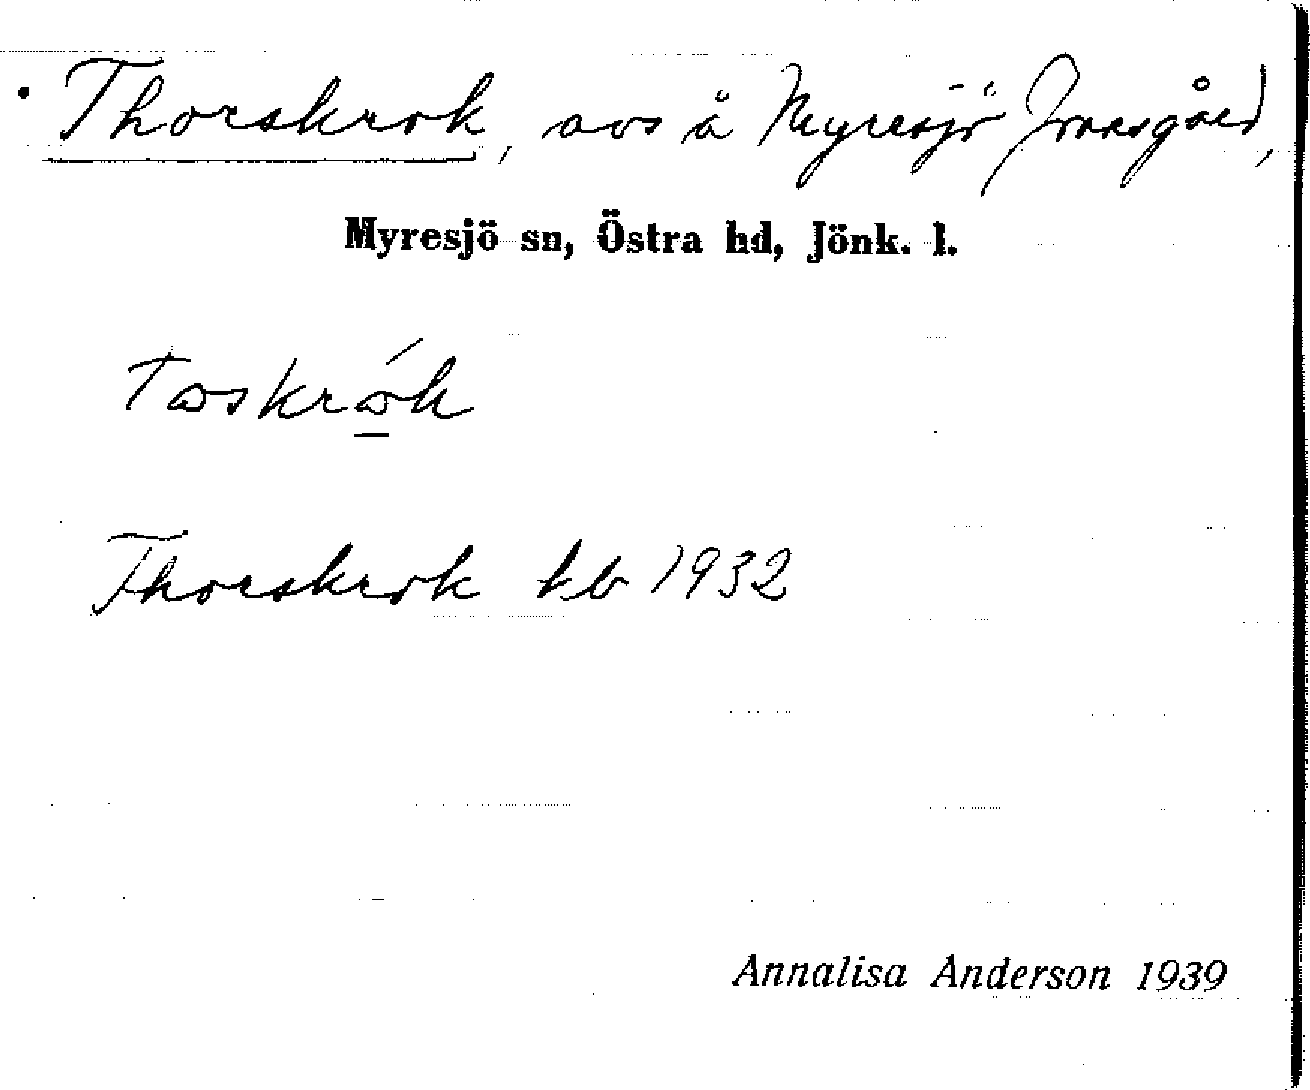 Thorskrok, avs å Myresjö Jonsgård,
Myresjö sn, Östra hd, Jönk. l.
Thorskrok kb 1932
Annalisa Anderson 1939